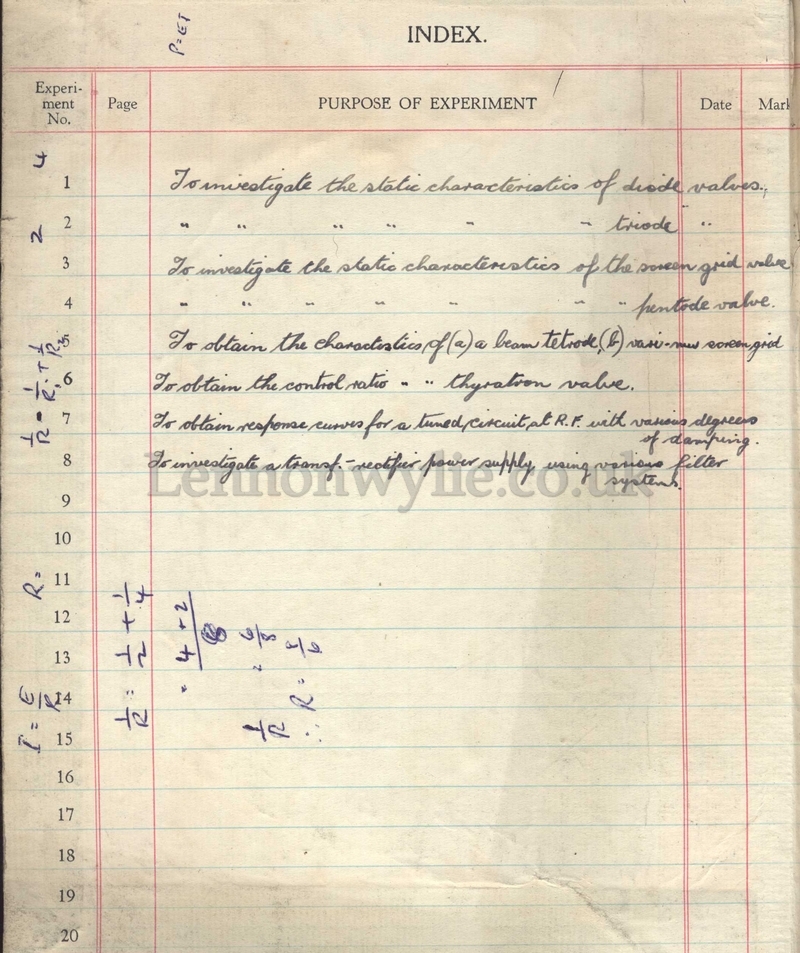 P=EI
INDEX.
Experi-
ment
No.
Page
PURPOSE OF EXPERIMENT
Date
Mark
1 To investigate the static characteristics of diode valves.
2 " " " " " " triode " "
3 To investigate the static characteristics of the screen grid valve
4 " " " " " " " pentode valve.
5 To obtain the charactistics of (a) a beam tetrode, (b) vari-mu screen grid
6 To obtain the control ratio " " thyratron valve.
7 To obtain response curves for a tuned circuit at R.F. with various degrees
of damping.
8 To investigate a transf.-rectifier power supply, using various filter
systems.
Lennonwylie.co.uk
9
10
11
12
13
14
15
16
17
18
19
20
2 4
1/R = 1/R1 + 1/R2
I = E/R R =
1/R = 1/2 + 1/4
= 4 + 2 / 8
1/R = 6/8
∴ R = 8/6